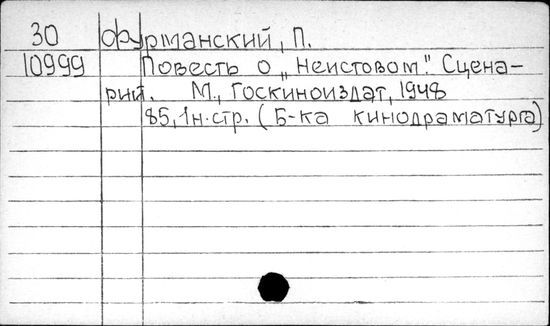 30 Фурманский, П.
10999 Повесть о „Неистовом". Сцена-
рий. М., Госкиноиздат, 1948
85, 1 н. стр. (Б-ка кинодраматурга)